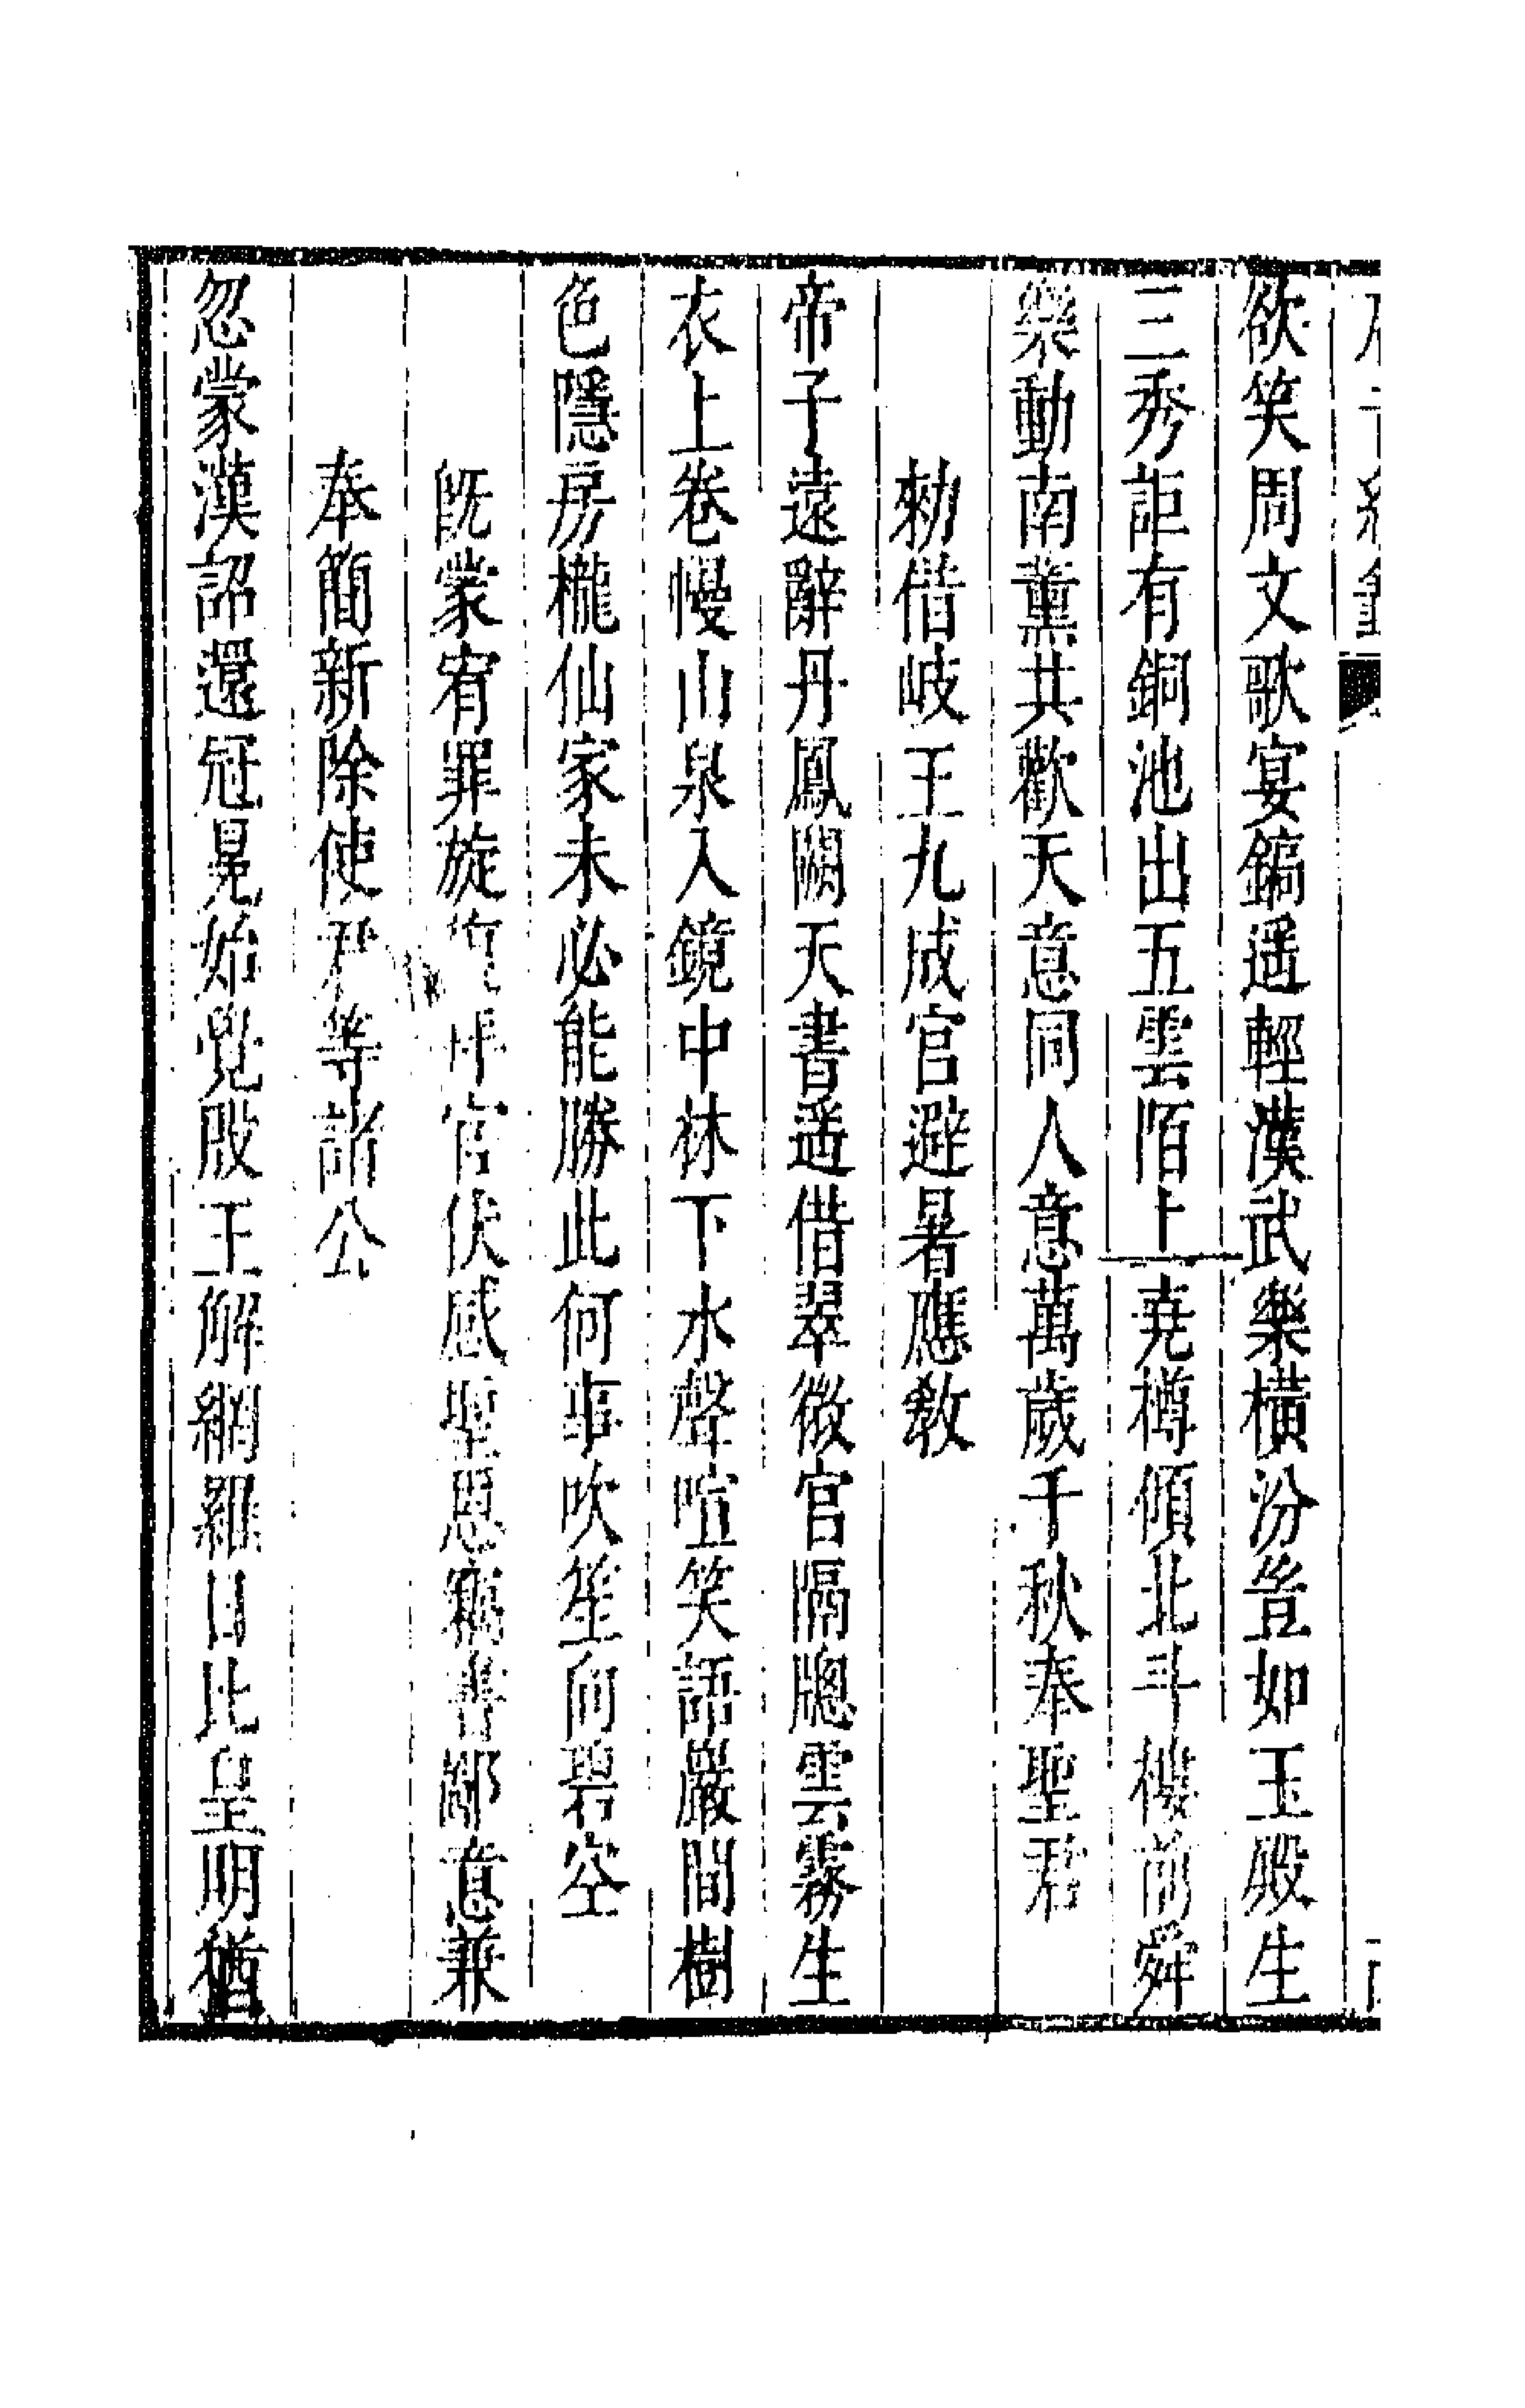 欲笑周文歌宴鎬遥輕漢武樂橫汾豈如玉殿生
三秀詎有銅池出五雲陌上堯樽傾北斗樓前舜
樂動南薰共歡天意同人意萬歲千秋奉聖君
勑借岐王九成宫避暑應教
帝子遠辭丹鳳闕天書遥借翠微宫隔牕雲霧生
衣上卷幔山泉入鏡中林下水聲喧笑語巖間樹
色隱房櫳仙家未必能勝此何事吹笙向碧空
旣蒙宥罪旋官伏感聖恩竊書鄙意兼
奉簡新除使君等諸公
忽蒙漢詔還冠冕始覺殷王解網羅日比皇明猶